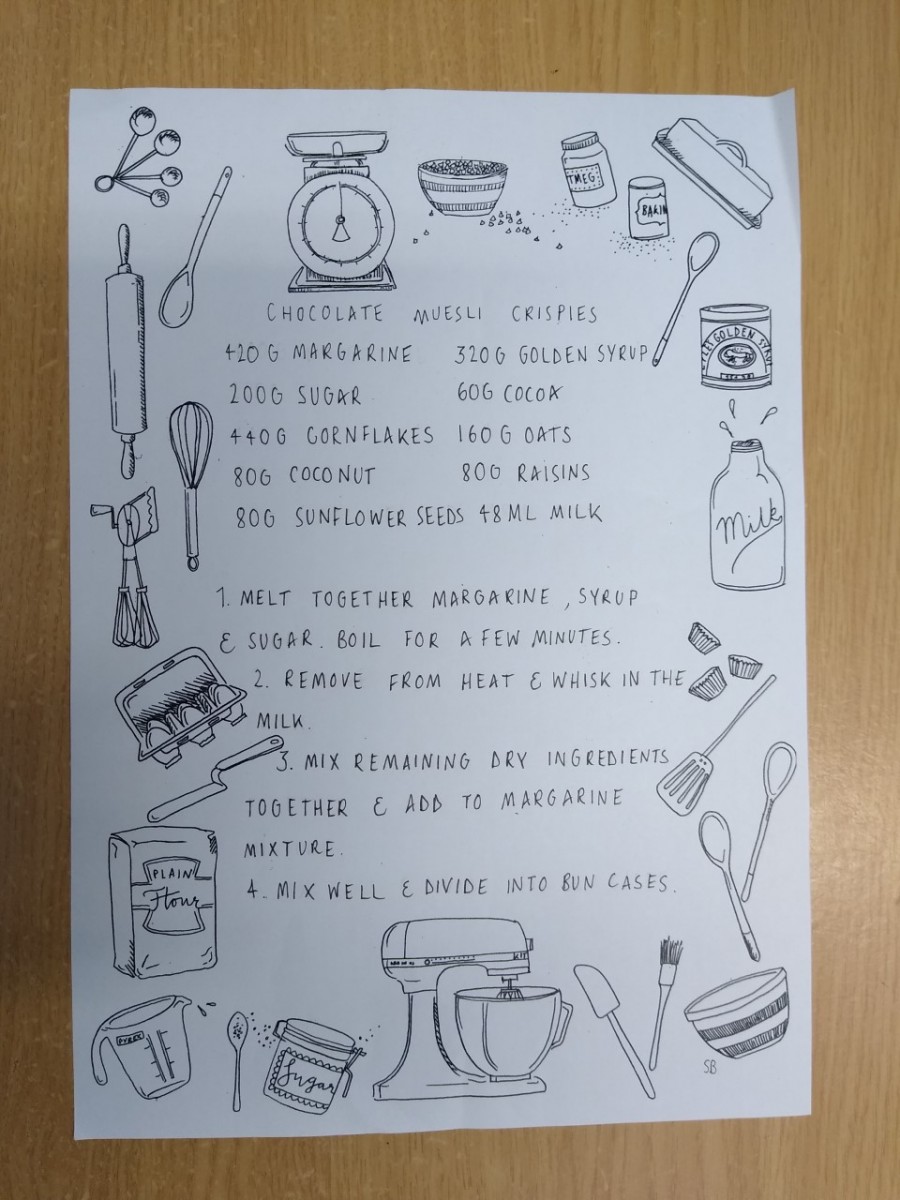 TMEG
BAKIN
CHOCOLATE MUESLI CRISPIES
GOLDEN SYRUP
420G MARGARINE 320G GOLDEN SYRUP
200G SUGAR 60G COCOA
440G CORNFLAKES 160G OATS
80G COCONUT 80G RAISINS
80G SUNFLOWER SEEDS 48ML MILK
Milk
1. MELT TOGETHER MARGARINE, SYRUP
& SUGAR. BOIL FOR A FEW MINUTES.
2. REMOVE FROM HEAT & WHISK IN THE
MILK.
3. MIX REMAINING DRY INGREDIENTS
TOGETHER & ADD TO MARGARINE
MIXTURE.
4. MIX WELL & DIVIDE INTO BUN CASES.
PLAIN
Flour
PYREX
Sugar
SB